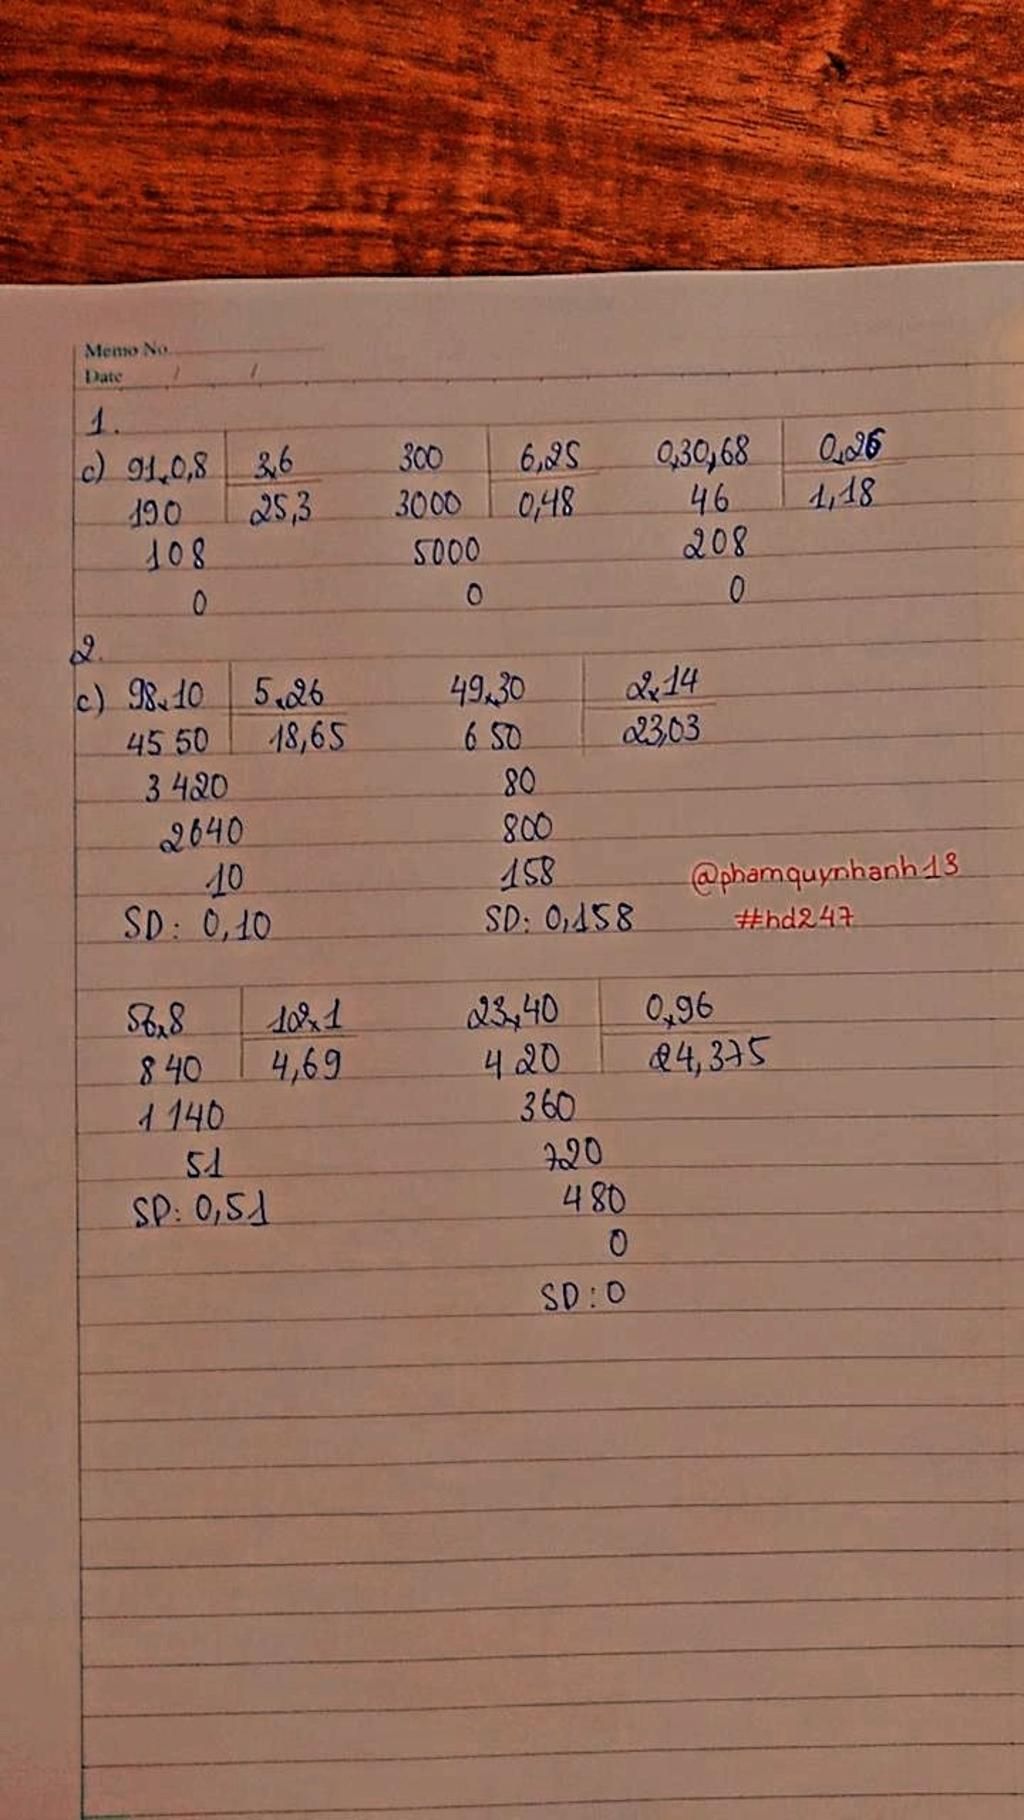 Memo No.
Date / /
1.
c) 91,0,8 3,6 300 6,25 0,30,68 0,26
190 25,3 3000 0,48 46 1,18
108 5000 208
0 0 0
2.
c) 98,10 5,26 49,30 2,14
45 50 18,65 6 50 23,03
3 420 80
2640 800
10 158 @phamquynhanh13
SD: 0,10 SD: 0,158 #hd247
56,8 12,1 23,40 0,96
8 40 4,69 4 20 24,375
1 140 360
51 720
SD: 0,51 480
0
SD: 0